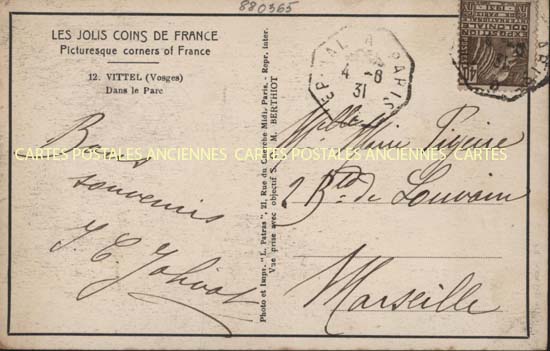 880365
LES JOLIS COINS DE FRANCE
Picturesque corners of France
12. VITTEL (Vosges)
Dans le Parc
Bons
souvenirs
CARTES POSTALES ANCIENNES CARTES POSTALES ANCIENNES CARTES
Photo et Impr. "L. Patras", 21, Rue du Cherche Midi, Paris. - Repr. inter.
Vue prise avec objectif S. O. M. BERTHIOT
EPINAL A PARIS
4 -8
31
2 Bld de Louvain
Marseille